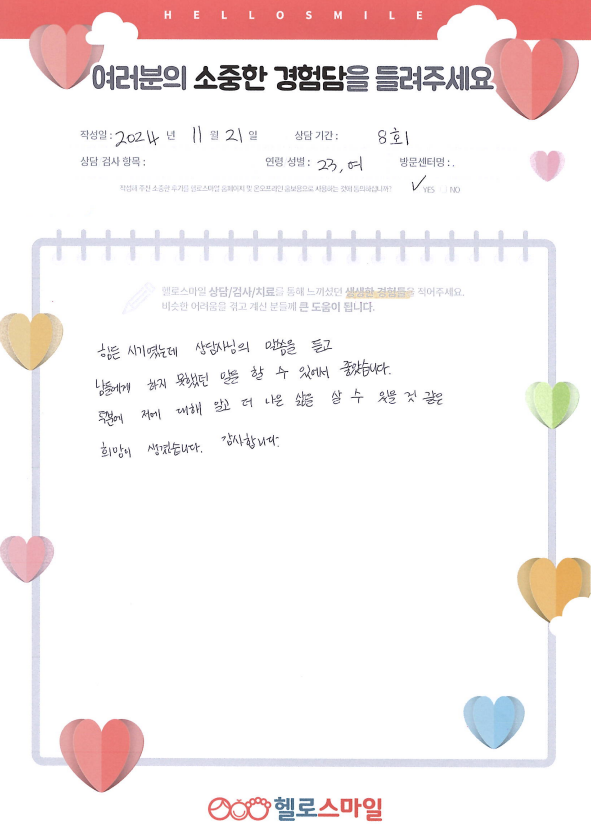 HELLOSMILE
여러분의 소중한 경험담을 들려주세요
작성일 : 2024 년 11 월 21 일 상담 기간 : 8회
상담 검사 항목 : 연령 성별 : 23, 여 방문센터명 : .
작성해 주신 소중한 후기를 헬로스마일 홈페이지 및 온오프라인 홍보용으로 사용하는 것에 동의하십니까? ✓ YES NO
헬로스마일 상담/검사/치료를 통해 느끼셨던 생생한 경험들을 적어주세요.
비슷한 어려움을 겪고 계신 분들께 큰 도움이 됩니다.
힘든 시기였는데 상담사님의 말씀을 듣고
남들에게 하지 못했던 말을 할 수 있어서 좋았습니다.
덕분에 저에 대해 알고 더 나은 삶을 살 수 있을 것 같은
희망이 생겼습니다. 감사합니다.
헬로스마일